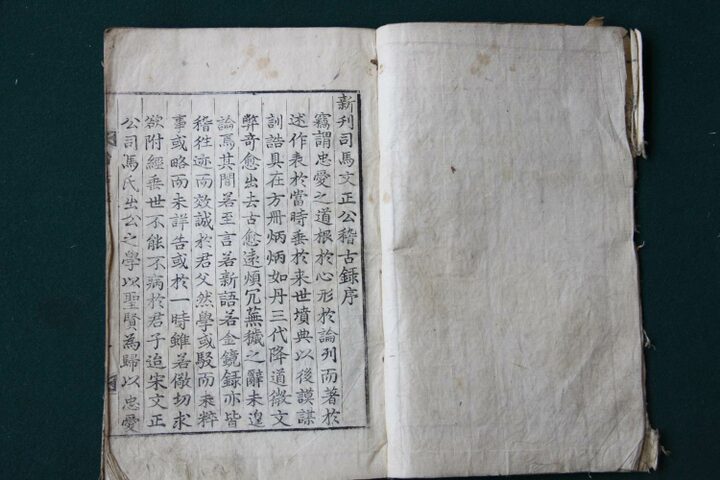 新刊司馬文正公稽古錄序
竊謂忠愛之道根於心形於論列而著於
述作表於當時垂於来世墳典以後謨謀
訓誥具在方冊炳炳如丹三代降道微文
弊奇愈出去古愈遠煩冗蕪穢之辭未遑
論焉其間若至言若新語若金鏡録亦皆
稽往迹而效誠於君父然學或駁而乘粹
事或略而未詳告或於一時雖若儆切求
欲附經垂世不能不病於君子迨宋文正
公司馬氏出公之學以聖賢為歸以忠愛